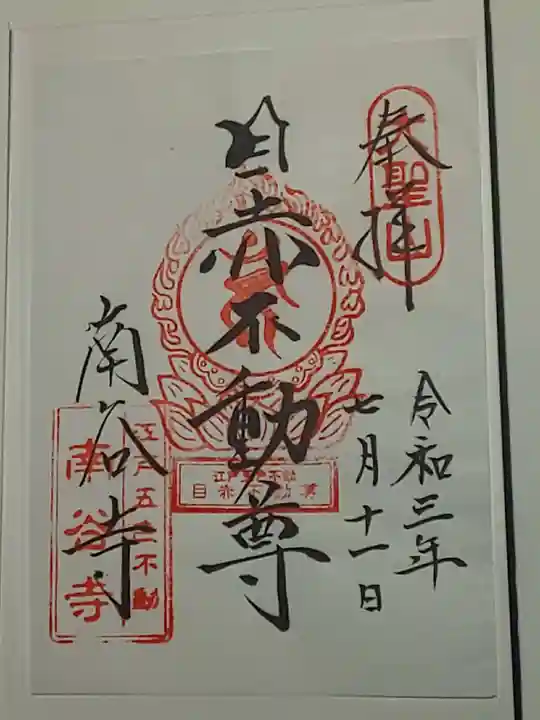 奉拝
大聖山
令和三年
七月十一日
目赤不動尊
江戸五色不動
目赤不動尊
南谷寺
江戸五色不動
南谷寺